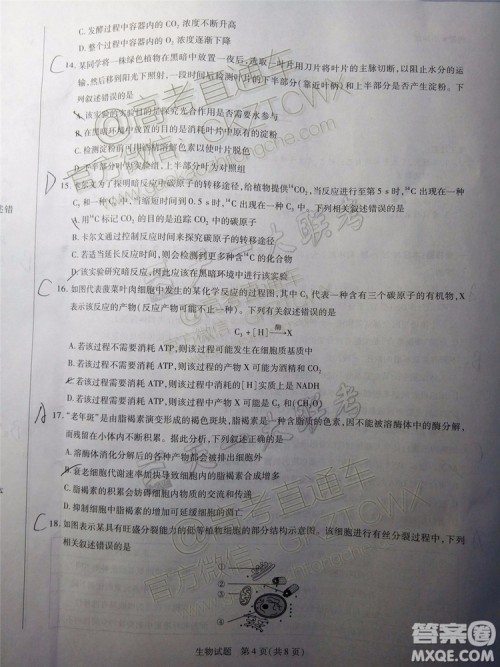 C. 发酵过程中容器内的 CO₂ 浓度不断升高
D. 整个过程中容器内的 O₂ 浓度逐渐下降
C 14. 某同学将一株绿色植物在黑暗中放置一夜后，选取一叶片用刀片将叶片的主脉切断，以阻止水分运输，
然后移到阳光下照射，一段时间后检测叶片的下半部分(靠近叶柄)和上半部分是否产生淀粉。下
列叙述错误的是
A. 该实验的目的是探究光合作用是否需要水参与
B. 在黑暗环境中放置的目的是消耗叶片中原有的淀粉
C. 检测淀粉时可直接用碘液使其呈现颜色
D. 叶片下半部分为实验组，上半部分为对照组
D 15. 卡尔文为了探明暗反应中碳原子的转移途径，给植物提供¹⁴CO₂，当反应进行至第 5 s 时，¹⁴C 出现在一种
C₅ 和一种 C₆ 中，当缩短时间为 0.5 s 时，¹⁴C 出现在一种 C₃ 中。下列相关叙述错误的是
A. 用¹⁴C 标记 CO₂ 的目的是追踪 CO₂ 中的碳原子
B. 卡尔文通过控制反应时间来探究碳原子的转移途径
C. 若适当延长反应时间，则会检测到更多种含¹⁴C 的化合物
D. 该实验研究暗反应，因此应在黑暗环境中进行该实验
C 16. 如图代表菠菜叶肉细胞中发生的某化学反应的过程图，其中 C₃ 代表一种含有三个碳原子的有机物，X
表示该反应的产物(反应产物可能不止一种)。下列有关叙述错误的是
C₃ + [H] 酶→ X
A. 若该过程不需要消耗 ATP，则该过程可能发生在细胞质基质中
B. 若该过程不需要消耗 ATP，则该过程的产物 X 可能为 C₂H₅OH 和 CO₂
C. 若该过程需要消耗 ATP，则该过程消耗的[H]实质上是 NADH
D. 若该过程需要消耗 ATP，则该过程的产物 X 可能是 C₅ 和(CH₂O)
A 17. “老年斑”是由脂褐素演变形成的褐色斑块，脂褐素是一种含脂质的色素，因不能被溶酶体中的酶分解，
而残留在小体内不断积累。据此分析，下列叙述错误的是
A. 溶酶体消化分解后的各种产物都会被排出细胞外
B. 衰老细胞代谢速率加快导致细胞内的脂褐素合成增多
C. 脂褐素的积累会妨碍细胞内物质的交流和传递
D. 抑制细胞内脂褐素的增加可以延缓细胞的凋亡
C 18. 如图表示某具有旺盛分裂能力的低等植物细胞的部分结构示意图。该细胞进行有丝分裂过程中，下列
相关叙述错误的是
①
②
③
④
生物试题 第 4 页(共 8 页)
天一大联考
高考直通车
官方微信：GKZTCWX
答案圈
MXQE.COM